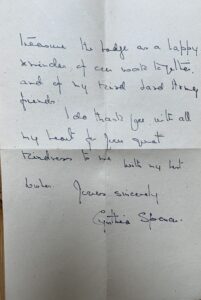 treasure the badge as a happy
reminder of our work together,
and of my kind Land Army
friends.
I do thank you with all
my heart for your great
kindness to me with my best
wishes. Yours sincerely
Cynthia